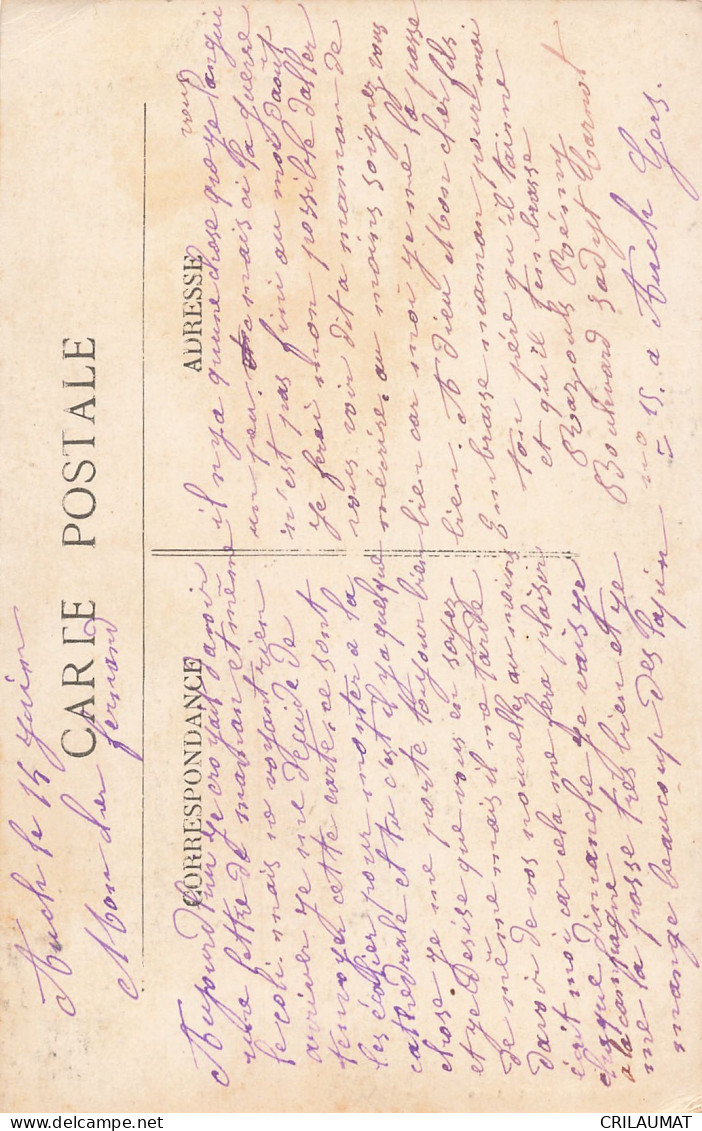 Auch le 15 juin
Mon cher fernand
CARTE POSTALE
CORRESPONDANCE
Aujourdhui je croyais d'avoir
une lettre de maman et même
le coli mais ne voyant rien
arriver je me décide de
tenvoyer cette carte ce sont
les écalier pour monter a la
cathédrale et toi c'est il ya quesque
chose je me porte toujour bien
et je desire que vous en soyez
de même mais il me tarde
davoir de vos nouvelles au moins
écrit moi car cela me fera plaisir
chaque dimanche je vais ye
a la campagne
me la passe très bien et ye
mange beaucoup des lapin
ADRESSE
il nya qu'une chose que ye langui
vous
un peu mais ci la guerre
n'est pas fini au moi daout
je ferai mon possible daller
vous voir dit a maman de
mécrire au moins soignez vous
bien car moi ye me la passe
bien. A Dieu Mon cher fils
Embrasse maman pour moi
ton père qui taime
et qui t'embrasse
Bazouls Rémy
Boulevard Sadyt Carnot
no 15. a Auch Gers.
CRILAUMAT